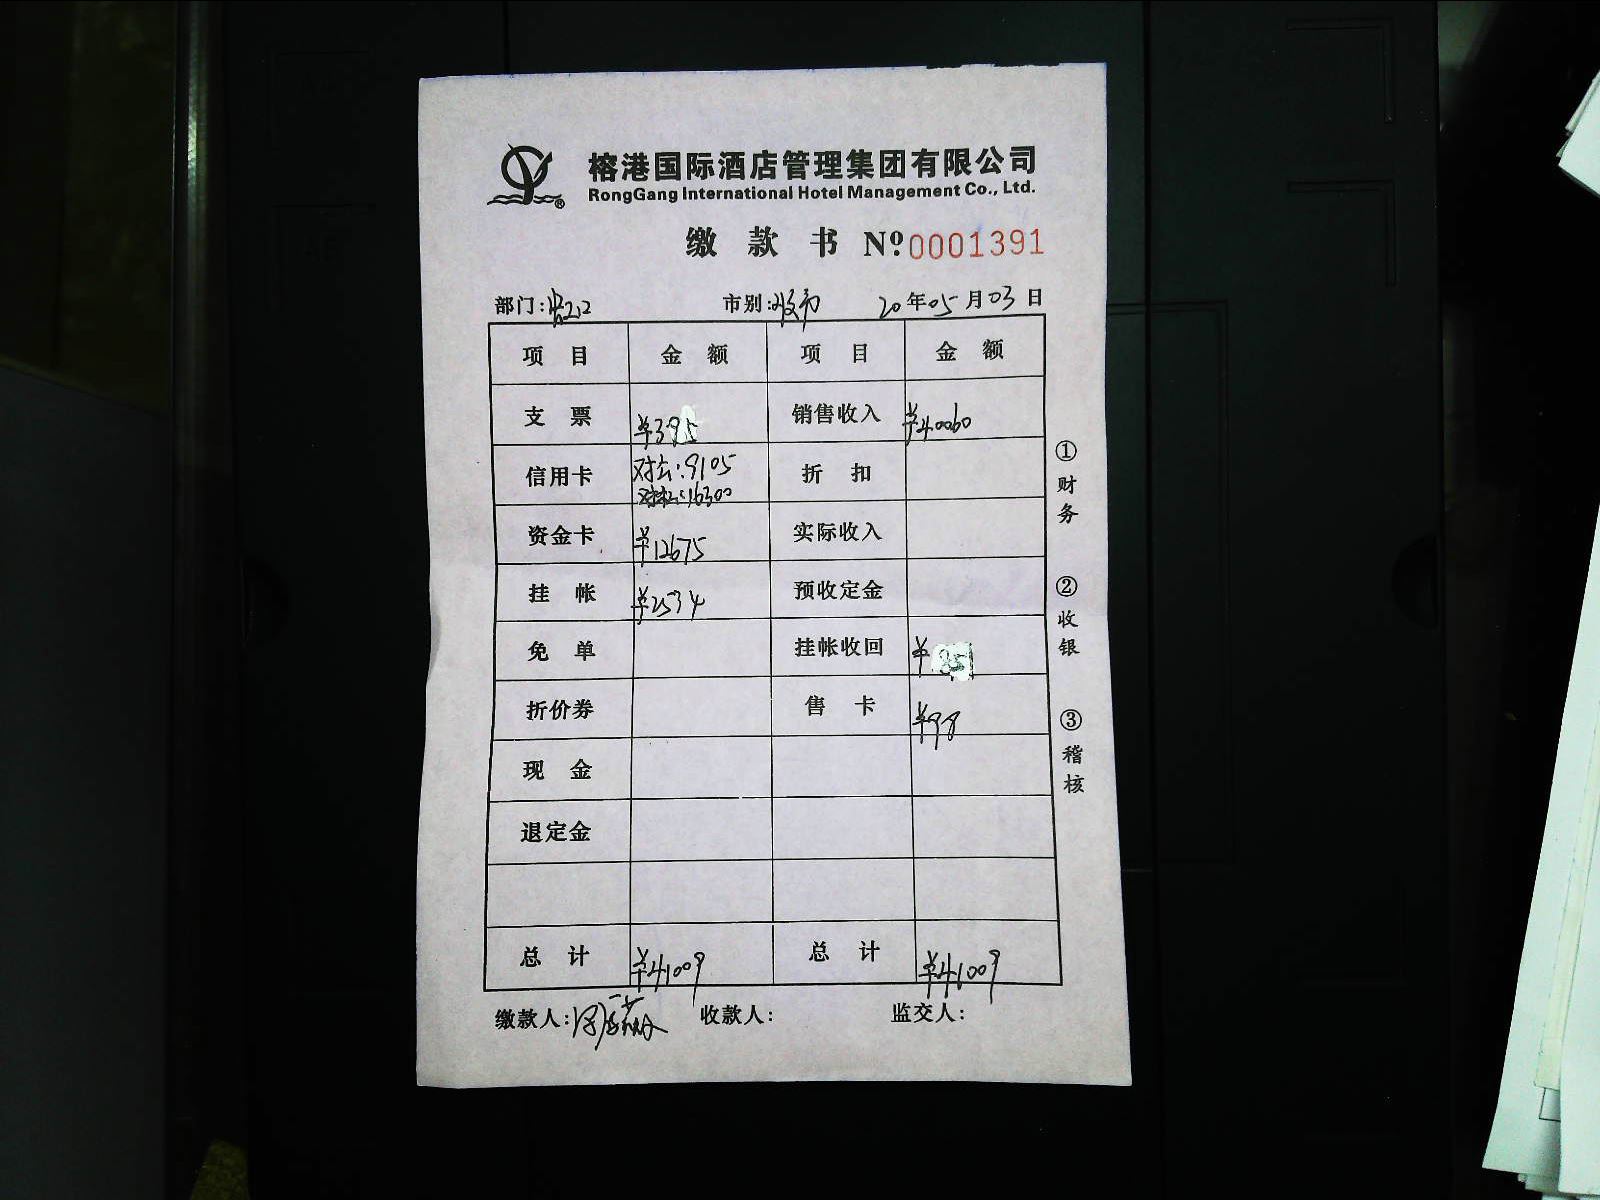 榕港国际酒店管理集团有限公司
RongGang International Hotel Management Co., Ltd.
缴款书 Nº 0001391
部门: 市别: 夜市 20年05月03日
项目 金额 项目 金额
支票 ¥395 销售收入 ¥40060
信用卡 对公:9105 折扣
16300
资金卡 ¥12675 实际收入
挂帐 ¥2534 预收定金
免单 挂帐收回 ¥851
折价券 售卡 ¥98
现金
退定金
总计 ¥41009 总计 ¥41009
缴款人: 收款人: 监交人:
①财务
②收银
③稽核